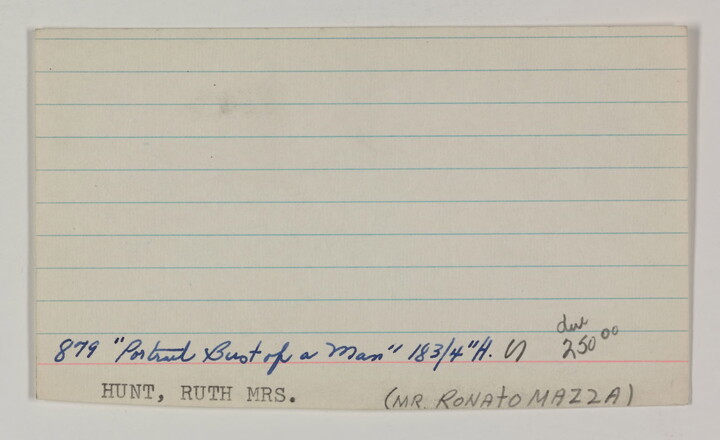 due
879 "Portrait Bust of a Man" 18 3/4" H. 250 00
HUNT, RUTH MRS. (MR. RONATO MAZZA)